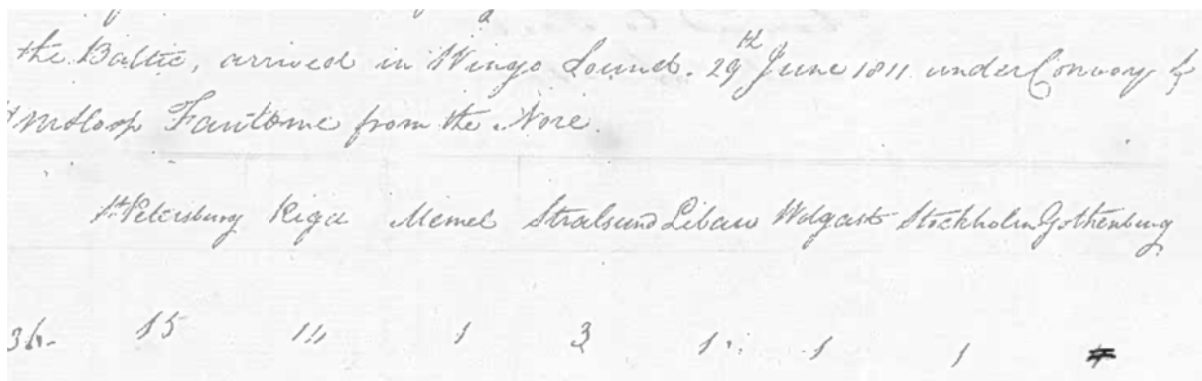 the Baltic, arrived in Wingo Sound. 29th June 1811 under Convoy of
Sloop Fantome from the Nore.
St Petersburg Riga Memel Stralsund Libau Wolgast Stockholm Gothenburg
36. 15 14 1 3 1 1 1